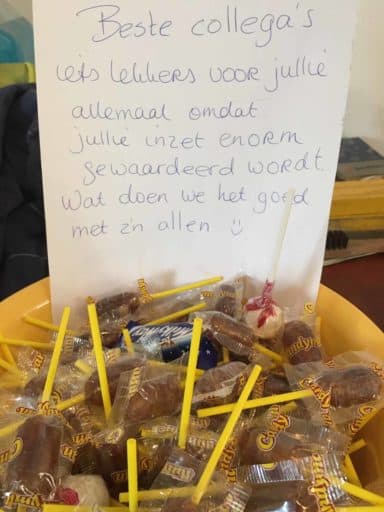 Beste collega's
iets lekkers voor jullie
allemaal omdat
jullie inzet enorm
gewaardeerd wordt.
Wat doen we het goed
met z'n allen ☺